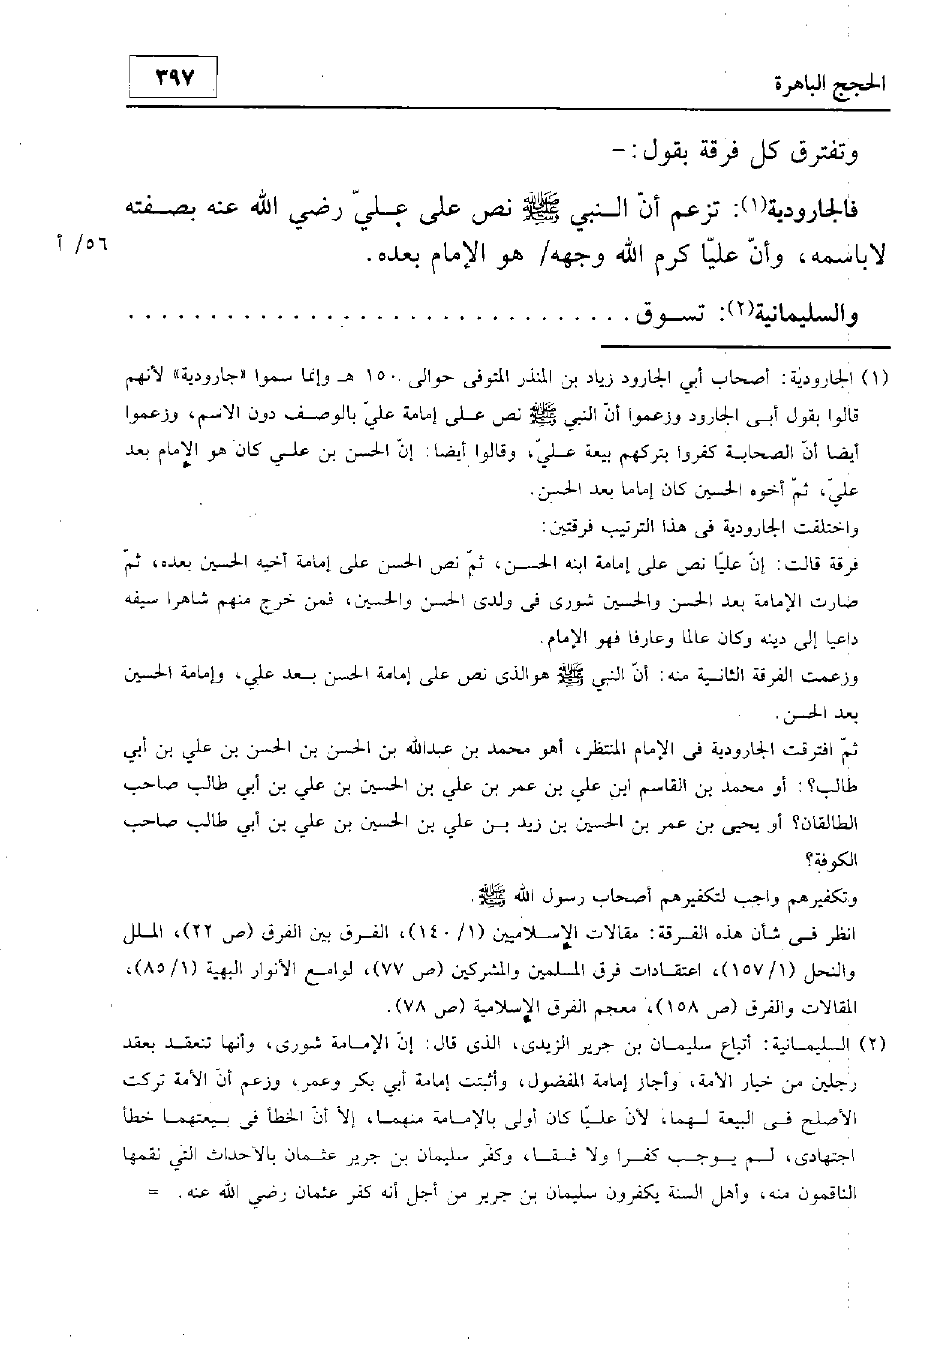 الحجج الباهرة
٣٩٧
وتفترق كل فرقة بقول: -
فالجارودية(١): تزعم أنّ النبي ﷺ نص على عليّ رضي الله عنه بصفته
لاباسمه، وأنّ عليّا كرم الله وجهه/ هو الإمام بعده.
٥٦/ أ
والسليمانية(٢): تسوق . . . . . . . . . . . . . . . . . . . . . . . . . . . . . .
(١) الجارودية: أصحاب أبي الجارود زياد بن المنذر المتوفى حوالى ١٥٠ هـ وإنما سموا «جارودية» لأنهم
قالوا بقول أبى الجارود وزعموا أنّ النبي ﷺ نص على إمامة عليّ بالوصف دون الاسم، وزعموا
أيضا أنّ الصحابة كفروا بتركهم بيعة عليّ، وقالوا أيضا: إنّ الحسن بن علي كان هو الإمام بعد
عليّ، ثمّ أخوه الحسين كان إماما بعد الحسن.
واختلفت الجارودية فى هذا الترتيب فرقتين:
فرقة قالت: إنّ عليّا نص على إمامة ابنه الحسن، ثمّ نص الحسن على إمامة أخيه الحسين بعده، ثمّ
صارت الإمامة بعد الحسن والحسين شورى فى ولدى الحسن والحسين، فمن خرج منهم شاهرا سيفه
داعيا إلى دينه وكان عالما وعارفا فهو الإمام.
وزعمت الفرقة الثانية منه: أنّ النبي ﷺ هوالذى نص على إمامة الحسن بعد علي، وإمامة الحسين
بعد الحسن.
ثمّ افترقت الجارودية فى الإمام المنتظر، أهو محمد بن عبدالله بن الحسن بن الحسن بن علي بن أبي
طالب؟: أو محمد بن القاسم ابن علي بن عمر بن علي بن الحسين بن علي بن أبي طالب صاحب
الطالقان؟ أو يحيى بن عمر بن الحسين بن زيد بن علي بن الحسين بن علي بن أبي طالب صاحب
الكوفة؟
وتكفيرهم واجب لتكفيرهم أصحاب رسول الله ﷺ.
انظر فى شأن هذه الفرقة: مقالات الإسلاميين (١/ ١٤٠)، الفرق بين الفرق (ص ٢٢)، الملل
والنحل (١/ ١٥٧)، اعتقادات فرق المسلمين والمشركين (ص ٧٧)، لوامع الأنوار البهية (١/ ٨٥)،
المقالات والفرق (ص ١٥٨)، معجم الفرق الإسلامية (ص ٧٨).
(٢) السليمانية: أتباع سليمان بن جرير الزيدى، الذى قال: إنّ الإمامة شورى، وأنها تنعقد بعقد
رجلين من خيار الأمة، وأجاز إمامة المفضول، وأثبت إمامة أبي بكر وعمر، وزعم أنّ الأمة تركت
الأصلح فى البيعة لهما، لأن عليّا كان أولى بالإمامة منهما، إلا أنّ الخطأ فى بيعتهما خطأ
اجتهادى، لم يوجب كفرا ولا فسقا، وكفّر سليمان بن جرير عثمان بالأحداث التي نقمها
الناقمون منه، وأهل السنة يكفرون سليمان بن جرير من أجل أنه كفر عثمان رضي الله عنه. =